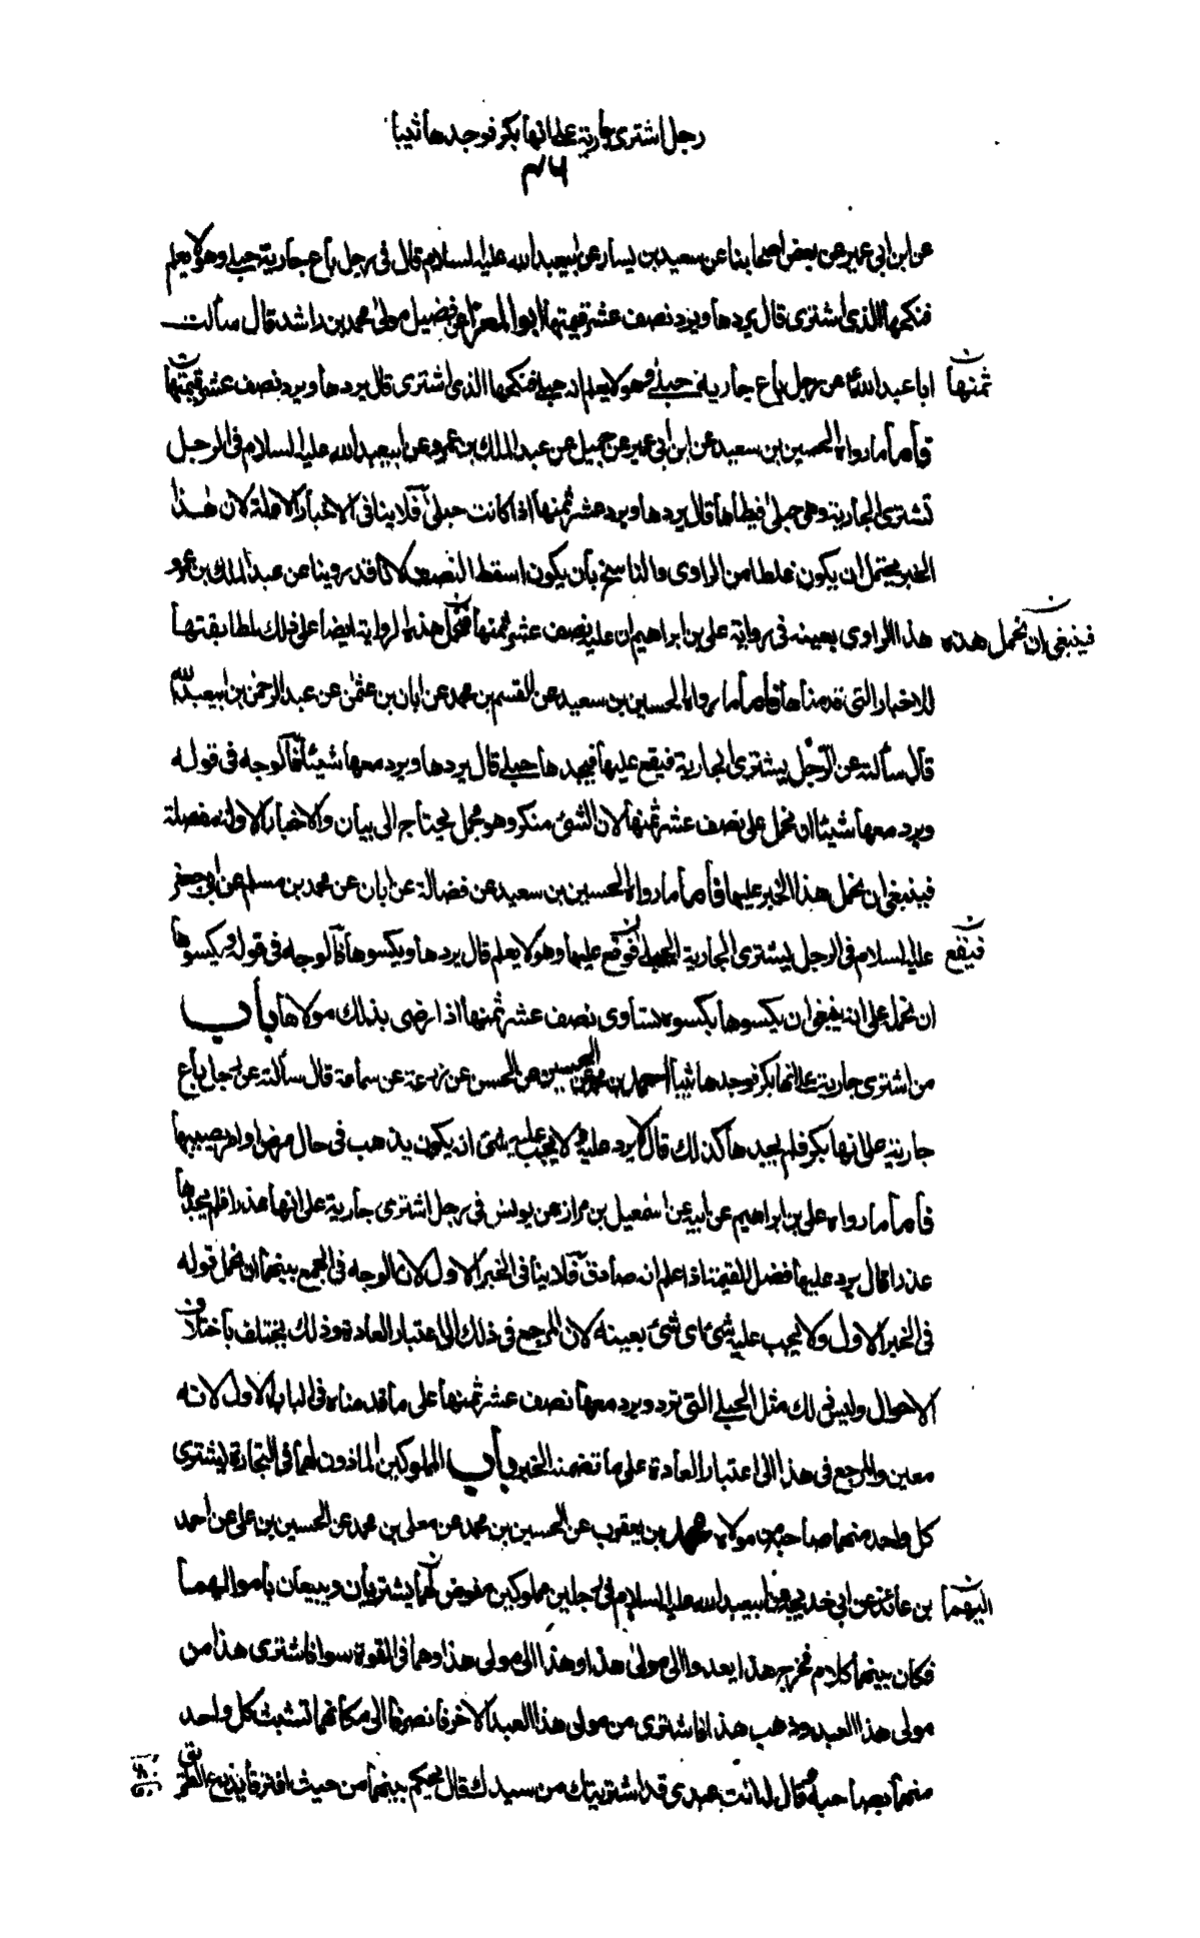 رجل اشترى جارية على انها بكر فوجدها ثيبا
عن ابن ابى عمير عن بعض اصحابنا عن سعيد بن يسار عن ابيعبدالله عليه السلام قال فى رجل باع جارية حبلى وهو لا يعلم
فنكحها الذى اشترى قال يردها ويرد نصف عشر قيمتها ابو المعزا عن فضيل مولى محمد بن راشد قال سألت
ثمنها ن
ابا عبدالله ع عن رجل باع جارية حبلى وهو لا يعلم انه حبلى فنكحها الذى اشترى قال يردها ويرد نصف عشر قيمتها
فأما ما رواه الحسين بن سعيد عن ابن أبى عمير عن جميل عن عبد الملك بن عمرو عن ابيعبدالله عليه السلام فى الرجل
تشترى الجارية وهى حبلى فيطأها قال يردها ويرد عشر ثمنها اذا كانت حبلى فلا ينافى الاخبار الاولة لان هذا
الخبر يحتمل ان يكون غلطا من الراوى والناسخ بأن يكون اسقط النصف لانا قد روينا عن عبد الملك بن عمرو
هذا الراوى بعينه فى رواية على بن ابراهيم ان عليه نصف عشر ثمنها فتحمل هذه الرواية ايضا على ذلك لمطابقتها
فينبغى ان تحمل هذه ن
للاخبار التى قدمناها فأما ما رواه الحسين بن سعيد عن القسم بن محمد عن ابان بن عثمن عن عبد الرحمن بن ابيعبدالله
قال سألته عن الرجل يشترى الجارية فيقع عليها فيجدها حبلى قال يردها ويرد معها شيئا فالوجه فى قوله
ويرد معها شيئا ان نحمل على نصف عشر ثمنها لان الشئ منكر وهو مجمل يحتاج الى بيان والاخبار الاولة مفصلة
فينبغى ان نحمل هذا الخبر عليها فأما ما رواه الحسين بن سعيد عن فضالة عن ابان عن محمد بن مسلم عن ابى جعفر
فيقع ن
عليه السلام فى الرجل يشترى الجارية الحبلى فوقع عليها وهو لا يعلم قال يردها ويكسوها فالوجه فى قوله ويكسوها
ان نحمل على انه ينبغى ان يكسوها بكسوة تساوى نصف عشر ثمنها اذا رضى بذلك مولاها باب
من اشترى جارية على انها بكر فوجدها ثيبا الحسين عن الحسن عن زرعة عن سماعة قال سألته عن رجل باع
جارية على انها بكر فلم يجدها كذلك قال لا يرد عليه ولا يجب عليه شئ انه يكون يذهب فى حال مرض او امر يصيبها
فأما ما رواه على بن ابراهيم عن ابيه عن اسمعيل بن مرار عن يونس فى رجل اشترى جارية على انها عذراء فلم يجدها
عذراء قال يرد عليها فضل القيمة اذا علم انه صادق فلا ينافى الخبر الاول لان الوجه فى الجمع بينهما ان نحمل قوله
فى الخبر الاول ولا يجب عليه شئ اى شئ بعينه لان المرجع فى ذلك الى اعتبار العادة وذلك يختلف باختلاف
الاحوال وليس ذلك مثل الحبلى التى ترد ويرد معها نصف عشر ثمنها على ما قدمناه فى الباب الاول لانه
معين والمرجع فى هذا الى اعتبار العادة على ما تضمنه الخبر باب المملوكين الماذون لهما فى التجارة يشترى
كل واحد منهما صاحبه من مولاه محمد بن يعقوب عن الحسين بن محمد عن معلى بن محمد عن الحسين بن على عن احمد
اليهما ن
بن عائذ عن ابى خديجة عن ابيعبدالله عليه السلام فى رجلين مملوكين مفوض لهما يشتريان ويبيعان بأموالهما
فكان بينهما كلام فخرج هذا يعدو الى مولى هذا وهذا الى مولى هذا وهما فى القوة سواء فاشترى هذا من
مولى هذا العبد وذهب هذا فاشترى من مولى هذا العبد الاخر فانصرفا الى مكانهما تشبث كل واحد
منهما بصاحبه وقال له انت عبدى قد اشتريتك من سيدك قال يحكم بينهما من حيث افترقا يذرع الطريق